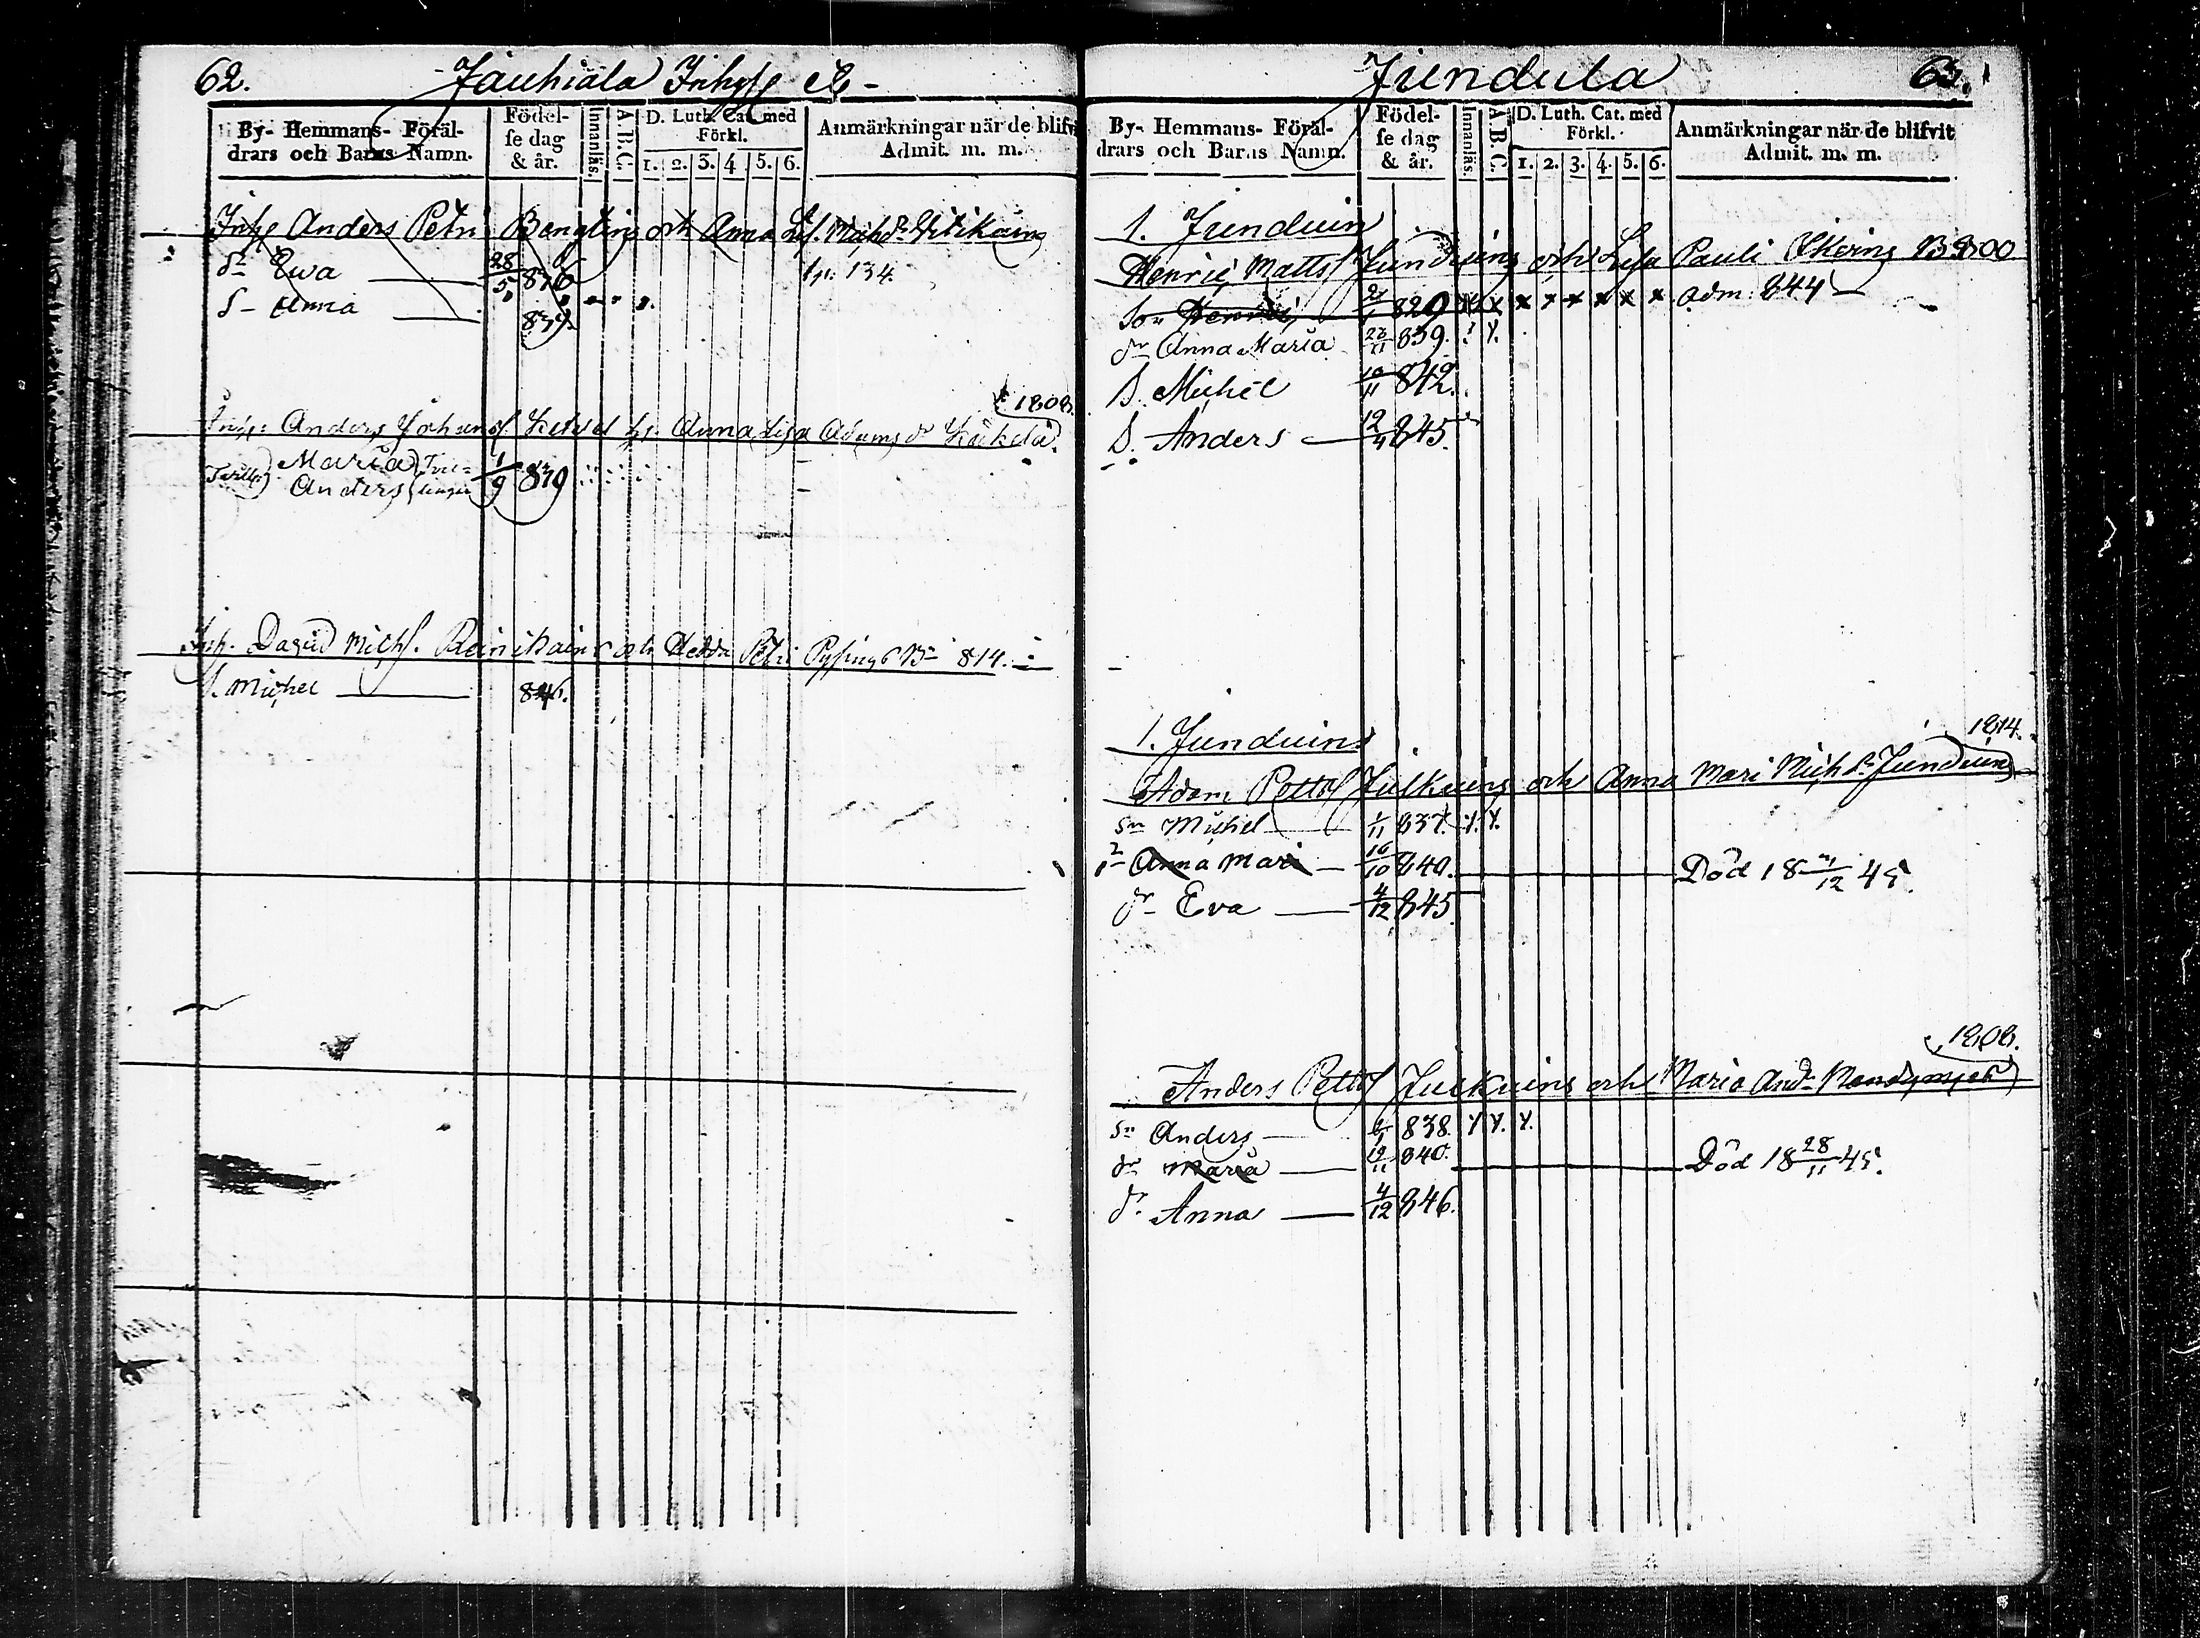 62.
Jauhiala Inhys &-
By- Hemmans- Föräl-
drars och Barns Namn.
Födel-
se dag
& år.
Innanläs.
A.B.C.
D. Luth. Cat. med
Förkl.
1. 2. 3. 4 5. 6.
Anmärkningar när de blifv
Admit. m. m.
Inhs Anders Petri Bengtins och Anna Mich dr
dr Ewa 28/5 836 134.
d- Anna 839.
1808.
Anders Johans och Anna Lisa Adams dr
Maria
Anders 1/9 839
Inh. David Michs. Reinikains och Hedda Petri 814.
S. Michel 846.
Jundula
63.
By- Hemmans- Föräl-
drars och Barns Namn.
Födel-
se dag
& år.
Innanläs.
A.B.C.
D. Luth. Cat. med
Förkl.
1. 2. 3. 4. 5. 6.
Anmärkningar när de blifvit
Admit. m. m.
1. Junduin
Henric Matts Junduins och Lisa Pauli 800
Son Henric 829 x x x x x x x x adm. 844
dr Anna Maria 23/11 839.
S. Michel 10/11 842.
S. Anders 12/4 845.
1. Junduins
1814.
Adam Petts Julkuins och Anna Mari Mich dr Junduins
Sn Michel 1/11 837.
dr Anna Mari 16/10 840. Död 18 /12 45.
dr Eva 4/12 845
1808.
Anders Petts Julkuins och Maria And.
Sn Anders 838.
dr Maria 840. Död 18 28/11 45.
dr Anna 4/12 846.